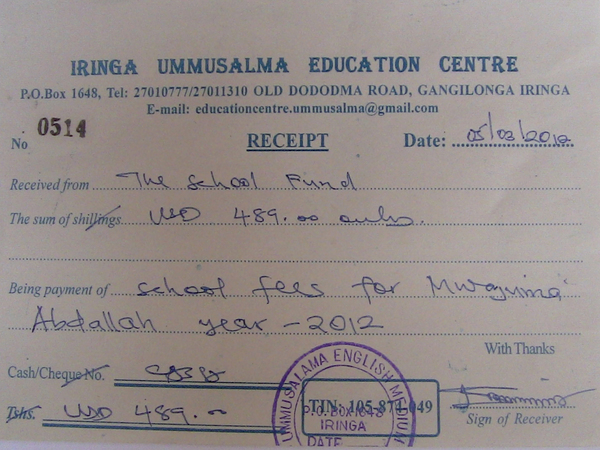 IRINGA UMMUSALMA EDUCATION CENTRE
P.O.Box 1648, Tel: 27010777/27011310 OLD DODODMA ROAD, GANGILONGA IRINGA
E-mail: educationcentre.ummusalma@gmail.com
No 0514 RECEIPT Date: 05/03/2012
Received from The School Fund
The sum of shillings USD 489.00 only.
Being payment of school fees for Mwajuma
Abdallah year - 2012
With Thanks
Cash/Cheque No.
Tshs. USD 489.-
Sign of Receiver
UMMUSALAMA ENGLISH MEDIUM
TIN: 105-874-049
P.O.BOX 1648
IRINGA
DATE